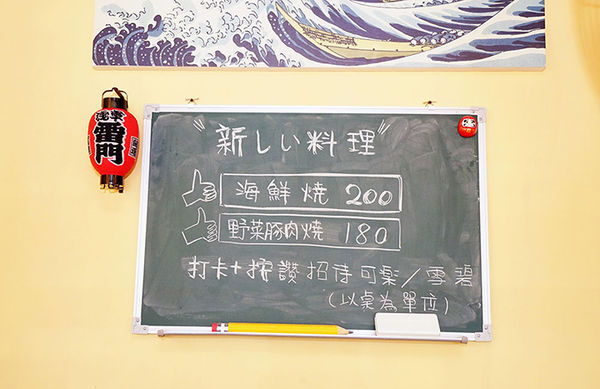 浅草
雷門
"新しい料理"
海鮮焼 200
野菜豚肉焼 180
打卡+按讚招待可樂/雪碧
(以桌為單位)